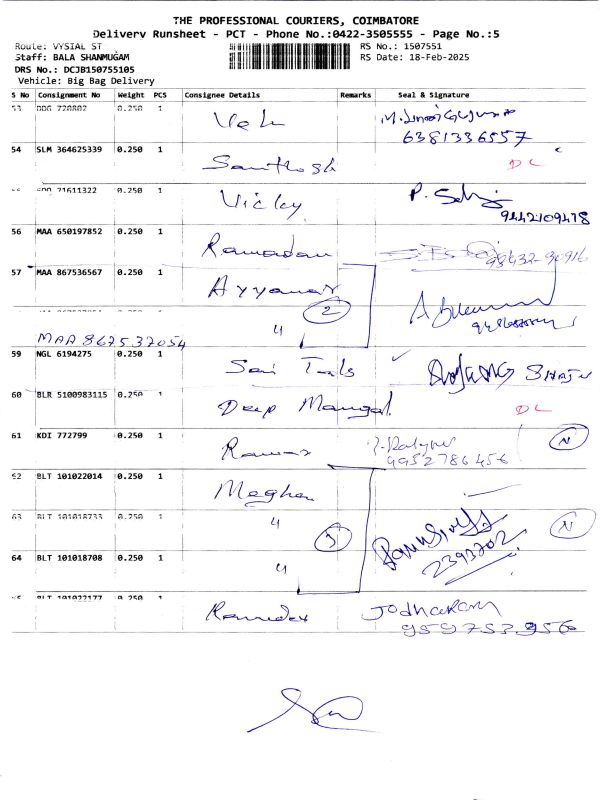 THE PROFESSIONAL COURIERS, COIMBATORE
Delivery Runsheet - PCT - Phone No.:0422-3505555 - Page No.:5
Route: VYSIAL ST
RS No.: 1507551
Staff: BALA SHANMUGAM
RS Date: 18-Feb-2025
DRS No.: DCJB150755105
Vehicle: Big Bag Delivery
S No Consignment No Weight PCS Consignee Details Remarks Seal & Signature
53 DDG 720802 0.250 1 Velu
6381336557
54 SLM 364625339 0.250 1 Santhosh DL
71611322 0.250 1 Vicky P.
9442109478
56 MAA 650197852 0.250 1 Ramadan
57 MAA 867536567 0.250 1 Ayyanar
2
0.250 1 4
MAA 867537054
59 NGL 6194275 0.250 1 Sai
60 BLR 5100983115 0.250 1 Deep Mangal DL
61 KDI 772799 0.250 1 N
9952786456
62 BLT 101022014 0.250 1 Megha
63 BLT 101018733 0.250 1 4 N
3
64 BLT 101018708 0.250 1 4
2393202
BLT 101022177 0.250 1 Ramdev Jodharam
959753956